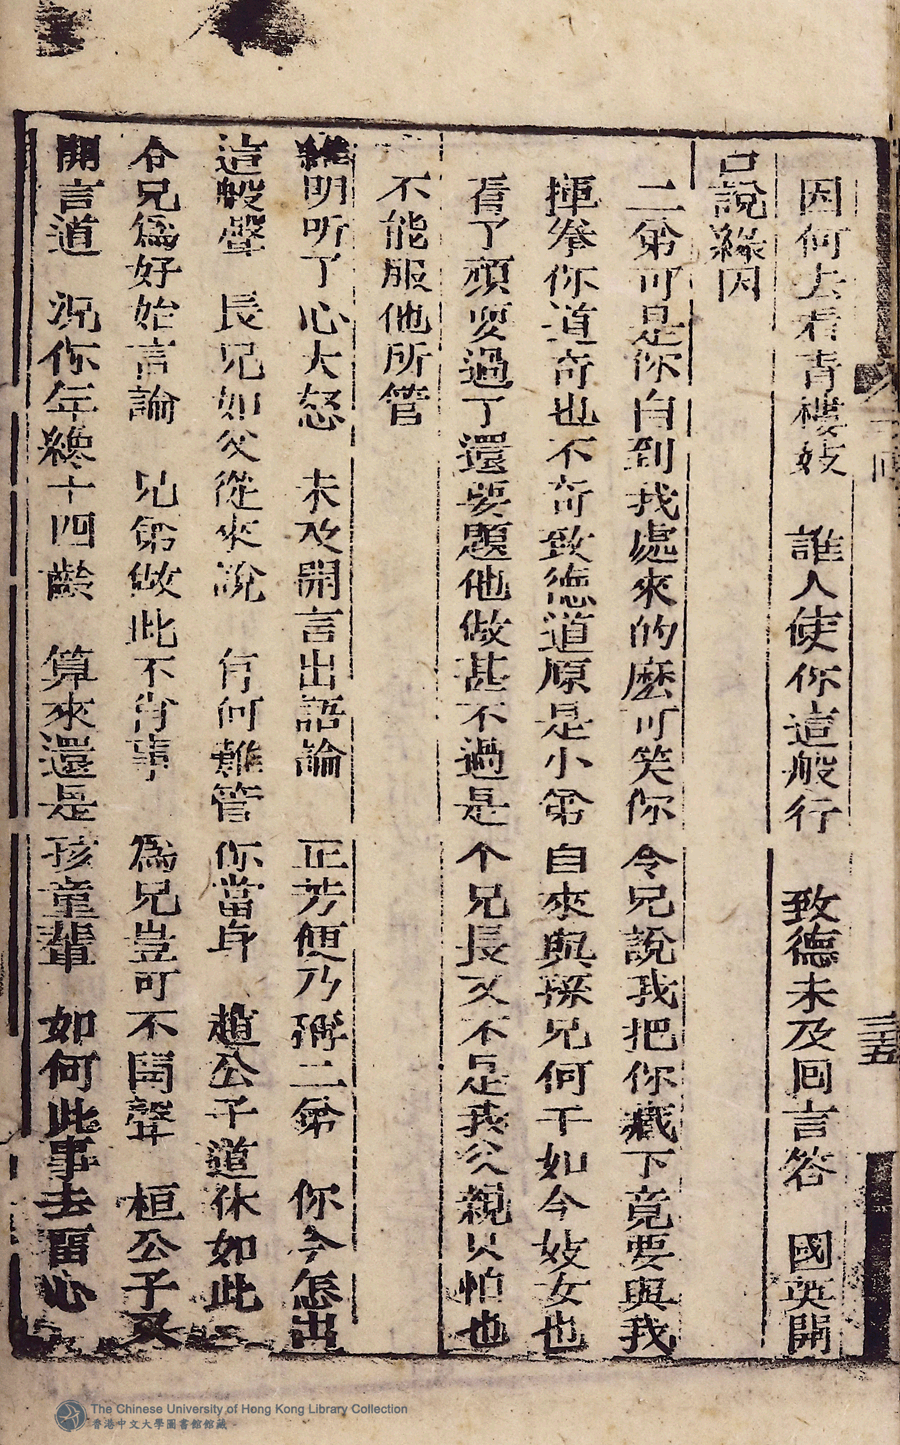 因何去看青樓妓　誰人使你這般行　致德未及回言答　國英開
口說緣因
二弟可是你自到我處來的麽可笑你令兄說我把你藏下竟要與我
揮拳你道奇也不奇致德道原是小弟自來與葵兄何干如今妓女也
看了頑耍過了還要題他做甚不過是个兄長又不是我父親只怕也
不能服他所管
維明听了心大怒　未及開言出語論　正芳便乃稱二弟　你今怎出
這般聲　長兄如父從來說　有何難管你當身　趙公子道休如此
令兄爲好始言論　兄弟做此不肖事　爲兄豈可不聞聲　桓公子又
開言道　況你年纔十四齡　算來還是孩童輩　如何此事去畱心
三十五
The Chinese University of Hong Kong Library Collection
香港中文大學圖書館館藏